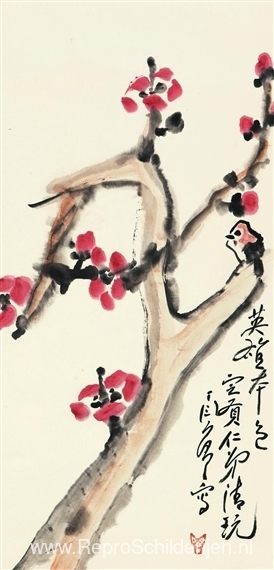 英雄本色
定頃仁弟清玩
丁衍庸寫
www.ReproSchilderijen.nl